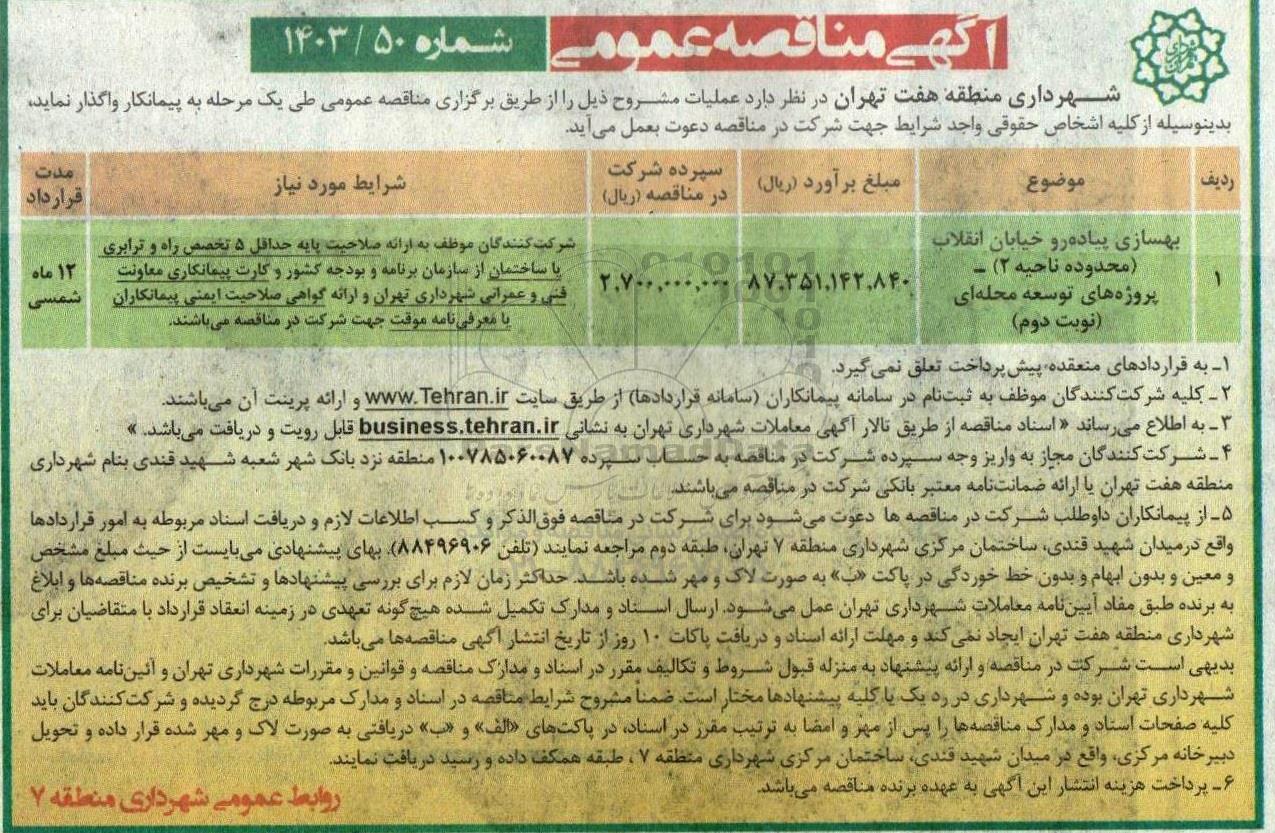 آگهی مناقصه عمومی
شماره ۵۰ / ۱۴۰۳
شهرداری منطقه هفت تهران در نظر دارد عملیات مشروح ذیل را از طریق برگزاری مناقصه عمومی طی یک مرحله به پیمانکار واگذار نماید،
بدینوسیله از کلیه اشخاص حقوقی واجد شرایط جهت شرکت در مناقصه دعوت بعمل می‌آید.
ردیف
موضوع
مبلغ برآورد (ریال)
سپرده شرکت
در مناقصه (ریال)
شرایط مورد نیاز
مدت
قرارداد
۱
بهسازی پیاده‌رو خیابان انقلاب
(محدوده ناحیه ۲) ـ
پروژه‌های توسعه محله‌ای
(نوبت دوم)
۸۷.۳۵۱.۱۴۲.۸۴۰
۲.۷۰۰.۰۰۰.۰۰۰
شرکت‌کنندگان موظف به ارائه صلاحیت پایه حداقل ۵ تخصص راه و ترابری
یا ساختمان از سازمان برنامه و بودجه کشور و کارت پیمانکاری معاونت
فنی و عمرانی شهرداری تهران و ارائه گواهی صلاحیت ایمنی پیمانکاران
یا معرفی‌نامه موقت جهت شرکت در مناقصه می‌باشند.
۱۲ ماه
شمسی
۱ـ به قراردادهای منعقده پیش‌پرداخت تعلق نمی‌گیرد.
۲ـ کلیه شرکت‌کنندگان موظف به ثبت‌نام در سامانه پیمانکاران (سامانه قراردادها) از طریق سایت www.Tehran.ir و ارائه پرینت آن می‌باشند.
۳ـ به اطلاع می‌رساند « اسناد مناقصه از طریق تالار آگهی معاملات شهرداری تهران به نشانی business.tehran.ir قابل رویت و دریافت می‌باشد. »
۴ـ شرکت‌کنندگان مجاز به واریز وجه سپرده شرکت در مناقصه به حساب سپرده ۱۰۰۷۸۵۰۶۰۰۸۷ منطقه نزد بانک شهر شعبه شهید قندی بنام شهرداری
منطقه هفت تهران یا ارائه ضمانت‌نامه معتبر بانکی شرکت در مناقصه می‌باشند.
۵ـ از پیمانکاران داوطلب شرکت در مناقصه ها دعوت می‌شود برای شرکت در مناقصه فوق‌الذکر و کسب اطلاعات لازم و دریافت اسناد مربوطه به امور قراردادها
واقع درمیدان شهید قندی، ساختمان مرکزی شهرداری منطقه ۷ تهران، طبقه دوم مراجعه نمایند (تلفن ۸۸۴۹۶۹۰۶). بهای پیشنهادی می‌بایست از حیث مبلغ مشخص
و معین و بدون ابهام و بدون خط خوردگی در پاکت «ب» به صورت لاک و مهر شده باشد. حداکثر زمان لازم برای بررسی پیشنهادها و تشخیص برنده مناقصه‌ها و ابلاغ
به برنده طبق مفاد آیین‌نامه معاملات شهرداری تهران عمل می‌شود. ارسال اسناد و مدارک تکمیل شده هیچ‌گونه تعهدی در زمینه انعقاد قرارداد با متقاضیان برای
شهرداری منطقه هفت تهران ایجاد نمی‌کند و مهلت ارائه اسناد و دریافت پاکات ۱۰ روز از تاریخ انتشار آگهی مناقصه‌ها می‌باشد.
بدیهی است شرکت در مناقصه و ارائه پیشنهاد به منزله قبول شروط و تکالیف مقرر در اسناد و مدارک مناقصه و قوانین و مقررات شهرداری تهران و آئین‌نامه معاملات
شهرداری تهران بوده و شهرداری در رد یک یا کلیه پیشنهادها مختار است. ضمناً مشروح شرایط مناقصه در اسناد و مدارک مربوطه درج گردیده و شرکت‌کنندگان باید
کلیه صفحات اسناد و مدارک مناقصه‌ها را پس از مهر و امضا به ترتیب مقرر در اسناد، در پاکت‌های «الف» و «ب» دریافتی به صورت لاک و مهر شده قرار داده و تحویل
دبیرخانه مرکزی، واقع در میدان شهید قندی، ساختمان مرکزی شهرداری منطقه ۷ ، طبقه همکف داده و رسید دریافت نمایند.
۶ـ پرداخت هزینه انتشار این آگهی به عهده برنده مناقصه می‌باشد.
روابط عمومی شهرداری منطقه ۷